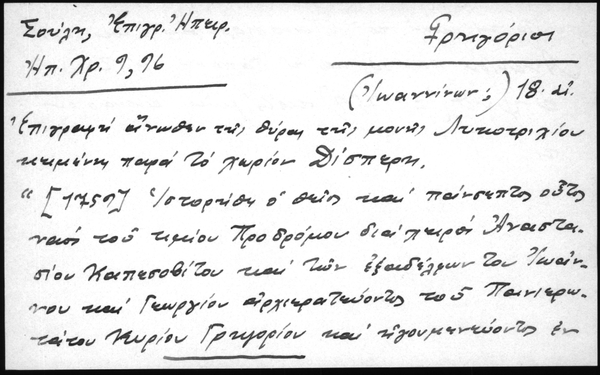 Σούλη, Ἐπιγρ. Ἠπειρ.
Γρηγόριος
Ἠπ. Χρ. 9, 96
(Ἰωαννίνων;) 18. αἰ.
Ἐπιγραφή ἄνωθεν τῆς θύρας τῆς μονῆς Λυκοτριχίου
κειμένη παρά τό χωρίον Δίσπερη.
"[1759] Ἱστορήθη ὁ θεῖος καί πάνσεπτος οὗτος
ναός τοῦ τιμίου Προδρόμου διά χειρός Ἀναστα-
σίου Καπεσοβίτου καί τῶν ἐξαδέλφων του Ἰωάν-
νου καί Γεωργίου ἀρχιερατεύοντος τοῦ Πανιερω-
τάτου Κυρίου Γρηγορίου καί ἡγουμενεύοντος ἐν